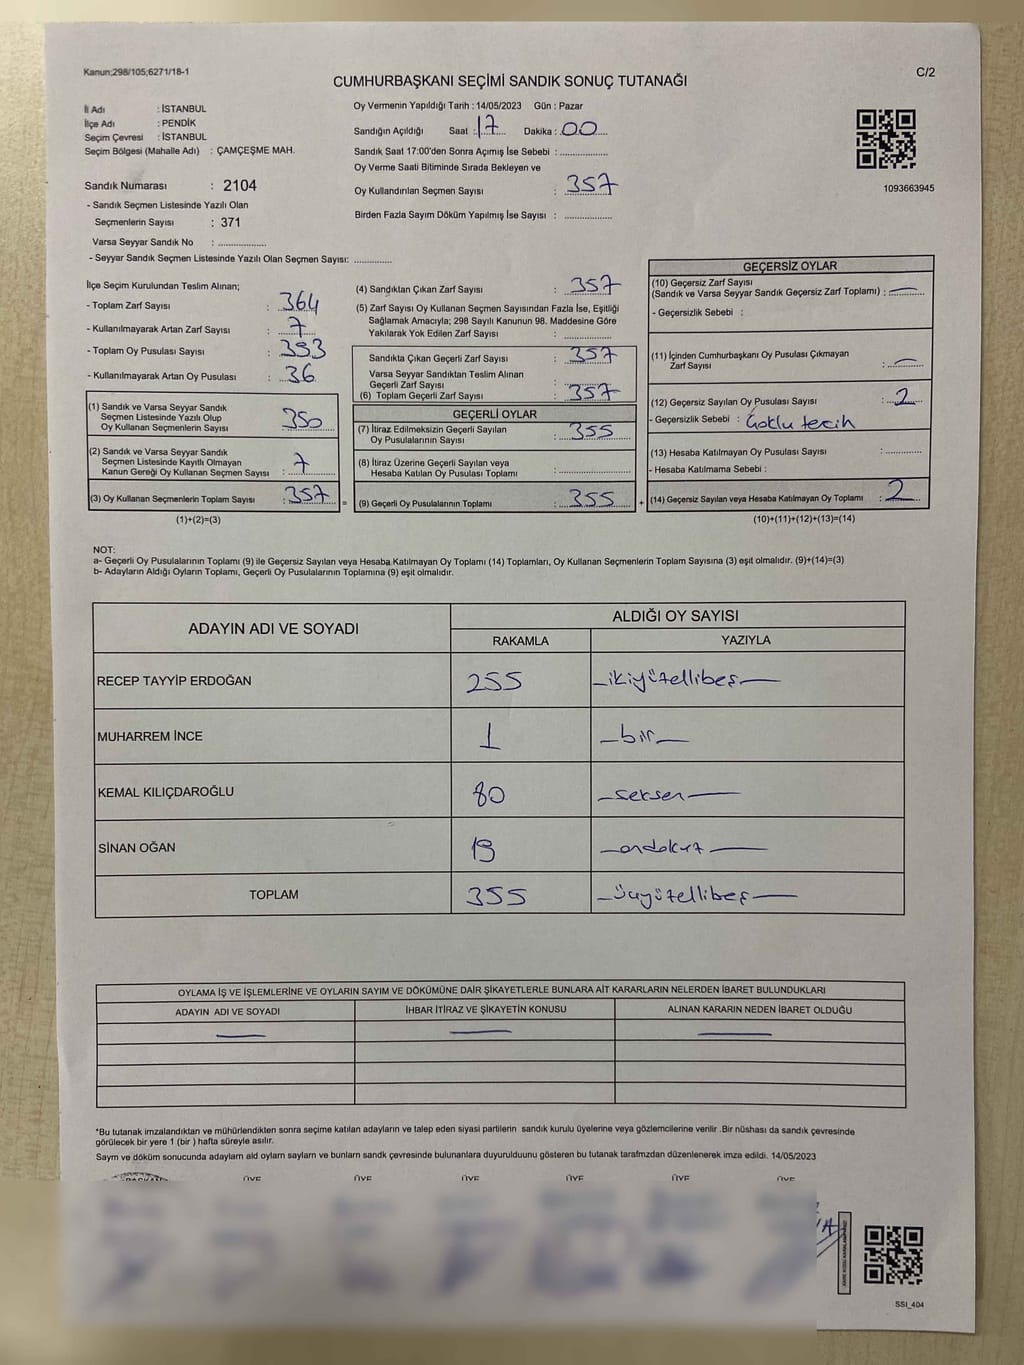 Kanun;298/105;6271/18-1
C/2
CUMHURBAŞKANI SEÇİMİ SANDIK SONUÇ TUTANAĞI
İl Adı : İSTANBUL
İlçe Adı : PENDİK
Seçim Çevresi : İSTANBUL
Seçim Bölgesi (Mahalle Adı) : ÇAMÇEŞME MAH.
Sandık Numarası : 2104
- Sandık Seçmen Listesinde Yazılı Olan
Seçmenlerin Sayısı : 371
Varsa Seyyar Sandık No : ................
- Seyyar Sandık Seçmen Listesinde Yazılı Olan Seçmen Sayısı: ............
Oy Vermenin Yapıldığı Tarih : 14/05/2023 Gün : Pazar
Sandığın Açıldığı Saat : 17 Dakika : 00
Sandık Saat 17:00'den Sonra Açımış İse Sebebi : ................
Oy Verme Saati Bitiminde Sırada Bekleyen ve
Oy Kullandırılan Seçmen Sayısı : 357
Birden Fazla Sayım Döküm Yapılmış İse Sayısı : ................
1093663945
İlçe Seçim Kurulundan Teslim Alınan;
- Toplam Zarf Sayısı : 364
- Kullanılmayarak Artan Zarf Sayısı : 7
- Toplam Oy Pusulası Sayısı : 393
- Kullanılmayarak Artan Oy Pusulası : 36
(1) Sandık ve Varsa Seyyar Sandık
Seçmen Listesinde Yazılı Olup
Oy Kullanan Seçmenlerin Sayısı 350
(2) Sandık ve Varsa Seyyar Sandık
Seçmen Listesinde Kayıtlı Olmayan
Kanun Gereği Oy Kullanan Seçmen Sayısı : 7
(3) Oy Kullanan Seçmenlerin Toplam Sayısı : 357
(1)+(2)=(3)
=
(4) Sandıktan Çıkan Zarf Sayısı : 357
(5) Zarf Sayısı Oy Kullanan Seçmen Sayısından Fazla İse, Eşitliği
Sağlamak Amacıyla; 298 Sayılı Kanunun 98. Maddesine Göre
Yakılarak Yok Edilen Zarf Sayısı : ................
Sandıkta Çıkan Geçerli Zarf Sayısı : 357
Varsa Seyyar Sandıktan Teslim Alınan
Geçerli Zarf Sayısı :
(6) Toplam Geçerli Zarf Sayısı : 357
GEÇERLİ OYLAR
(7) İtiraz Edilmeksizin Geçerli Sayılan
Oy Pusulalarının Sayısı : 355
(8) İtiraz Üzerine Geçerli Sayılan veya
Hesaba Katılan Oy Pusulası Toplamı : ................
(9) Geçerli Oy Pusulalarının Toplamı : 355
+
GEÇERSİZ OYLAR
(10) Geçersiz Zarf Sayısı
(Sandık ve Varsa Seyyar Sandık Geçersiz Zarf Toplamı) : —
- Geçersizlik Sebebi :
(11) İçinden Cumhurbaşkanı Oy Pusulası Çıkmayan
Zarf Sayısı : —
(12) Geçersiz Sayılan Oy Pusulası Sayısı : 2
- Geçersizlik Sebebi : Çoklu tercih
(13) Hesaba Katılmayan Oy Pusulası Sayısı : ............
- Hesaba Katılmama Sebebi :
(14) Geçersiz Sayılan veya Hesaba Katılmayan Oy Toplamı : 2
(10)+(11)+(12)+(13)=(14)
NOT:
a- Geçerli Oy Pusulalarının Toplamı (9) ile Geçersiz Sayılan veya Hesaba Katılmayan Oy Toplamı (14) Toplamları, Oy Kullanan Seçmenlerin Toplam Sayısına (3) eşit olmalıdır. (9)+(14)=(3)
b- Adayların Aldığı Oyların Toplamı, Geçerli Oy Pusulalarının Toplamına (9) eşit olmalıdır.
ADAYIN ADI VE SOYADI
ALDIĞI OY SAYISI
RAKAMLA YAZIYLA
RECEP TAYYİP ERDOĞAN 255 —ikiyüzellibeş—
MUHARREM İNCE 1 —bir—
KEMAL KILIÇDAROĞLU 80 —seksen—
SİNAN OĞAN 19 —ondokuz—
TOPLAM 355 —üçyüzellibeş—
OYLAMA İŞ VE İŞLEMLERİNE VE OYLARIN SAYIM VE DÖKÜMÜNE DAİR ŞİKAYETLERLE BUNLARA AİT KARARLARIN NELERDEN İBARET BULUNDUKLARI
ADAYIN ADI VE SOYADI İHBAR İTİRAZ VE ŞİKAYETİN KONUSU ALINAN KARARIN NEDEN İBARET OLDUĞU
— — —
*Bu tutanak imzalandıktan ve mühürlendikten sonra seçime katılan adayların ve talep eden siyasi partilerin sandık kurulu üyelerine veya gözlemcilerine verilir .Bir nüshası da sandık çevresinde
görülecek bir yere 1 (bir ) hafta süreyle asılır.
Saym ve döküm sonucunda adaylarn ald oylarn saylarn ve bunlarn sandk çevresinde bulunanlara duyurulduunu gösteren bu tutanak tarafmzdan düzenlenerek imza edildi. 14/05/2023
BAŞKAN ÜYE ÜYE ÜYE ÜYE ÜYE ÜYE
SSI_404